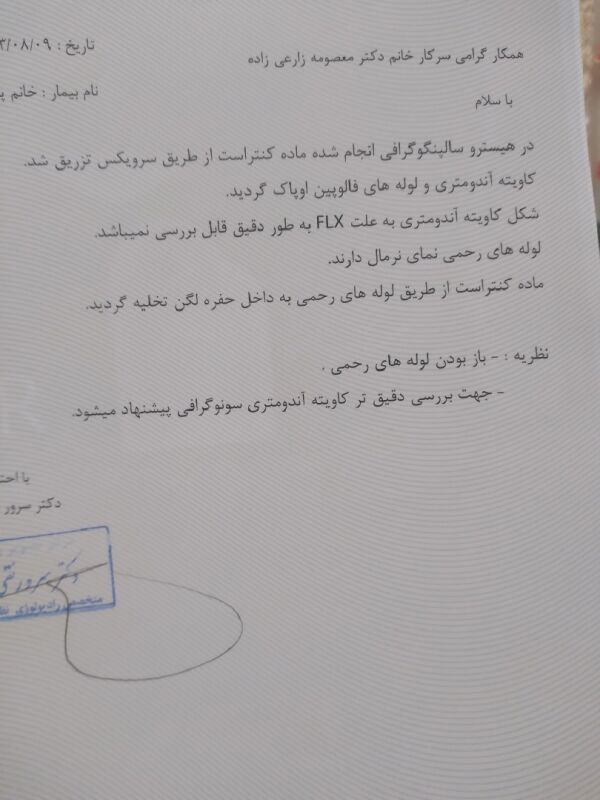 تاریخ : ۳/۰۸/۰۹
همکار گرامی سرکار خانم دکتر معصومه زارعی زاده
نام بیمار : خانم
با سلام
در هیسترو سالپنگوگرافی انجام شده ماده کنتراست از طریق سرویکس تزریق شد.
کاویته آندومتری و لوله های فالوپین اوپاک گردید.
شکل کاویته آندومتری به علت FLX به طور دقیق قابل بررسی نمیباشد.
لوله های رحمی نمای نرمال دارند.
ماده کنتراست از طریق لوله های رحمی به داخل حفره لگن تخلیه گردید.
نظریه : - باز بودن لوله های رحمی .
- جهت بررسی دقیق تر کاویته آندومتری سونوگرافی پیشنهاد میشود.
با
دکتر سرور
دکتر سرور
متخصص رادیولوژی